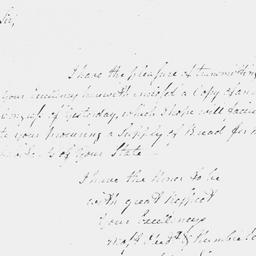 Sir,
I have the pleasure of transmitting
your Excellency herewith inclosed a Copy of an
of yesterday, which I hope will facili
te your procuring a Supply of Bread for
of your State
I have the Honor to be
with great Respect
Your Excellencys
most Obedt & humble